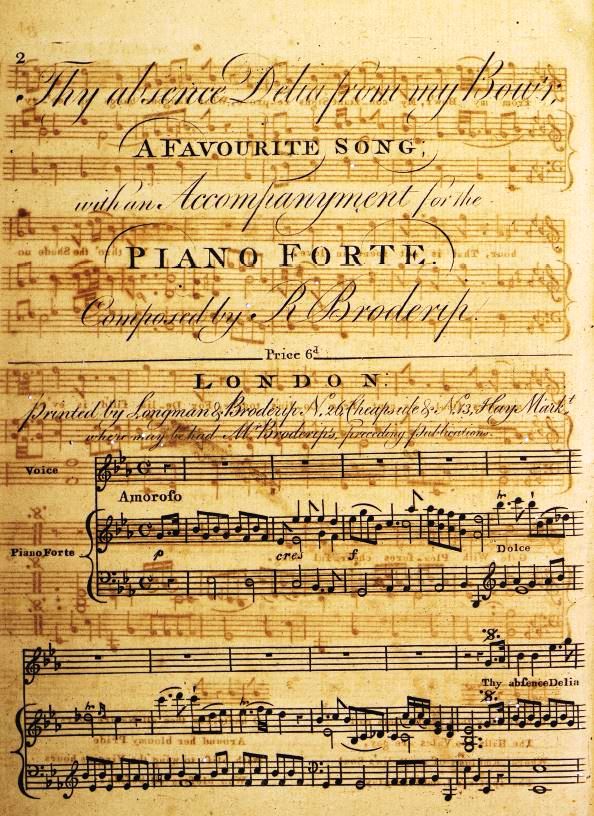 2
Thy absence Delia from my Bow'r,
A FAVOURITE SONG;
with an Accompanyment for the
PIANO FORTE.
Composed by R Broderip.
Price 6d
LONDON:
Printed by Longman & Broderip No. 26 Cheapside & No. 13, Hay Markt
where may be had Mr Broderip's, preceding publications.
Voice
Amoroso
Piano Forte
p cres f Dolce
Thy absence Delia